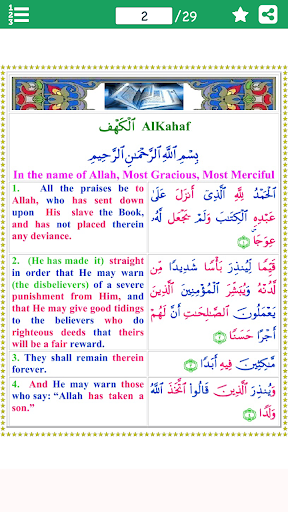 1
2
3
2
/29
الْكَهْف AlKahaf
بِسْمِ اللَّهِ الرَّحْمَٰنِ الرَّحِيمِ
In the name of Allah, Most Gracious, Most Merciful
1. All the praises be to
Allah, who has sent down
upon His slave the Book,
and has not placed therein
any deviance.
الْحَمْدُ لِلَّهِ الَّذِي أَنزَلَ عَلَىٰ
عَبْدِهِ الْكِتَابَ وَلَمْ يَجْعَل لَّهُ
عِوَجًا ۜ ﴿١﴾
2. (He has made it) straight
in order that He may warn
(the disbelievers) of a severe
punishment from Him, and
that He may give good tidings
to the believers who do
righteous deeds that theirs
will be a fair reward.
قَيِّمًا لِّيُنذِرَ بَأْسًا شَدِيدًا مِّن
لَّدُنْهُ وَيُبَشِّرَ الْمُؤْمِنِينَ الَّذِينَ
يَعْمَلُونَ الصَّالِحَاتِ أَنَّ لَهُمْ
أَجْرًا حَسَنًا ﴿٢﴾
3. They shall remain therein
forever.
مَّاكِثِينَ فِيهِ أَبَدًا ﴿٣﴾
4. And He may warn those
who say: “Allah has taken a
son.”
وَيُنذِرَ الَّذِينَ قَالُوا اتَّخَذَ اللَّهُ
وَلَدًا ﴿٤﴾